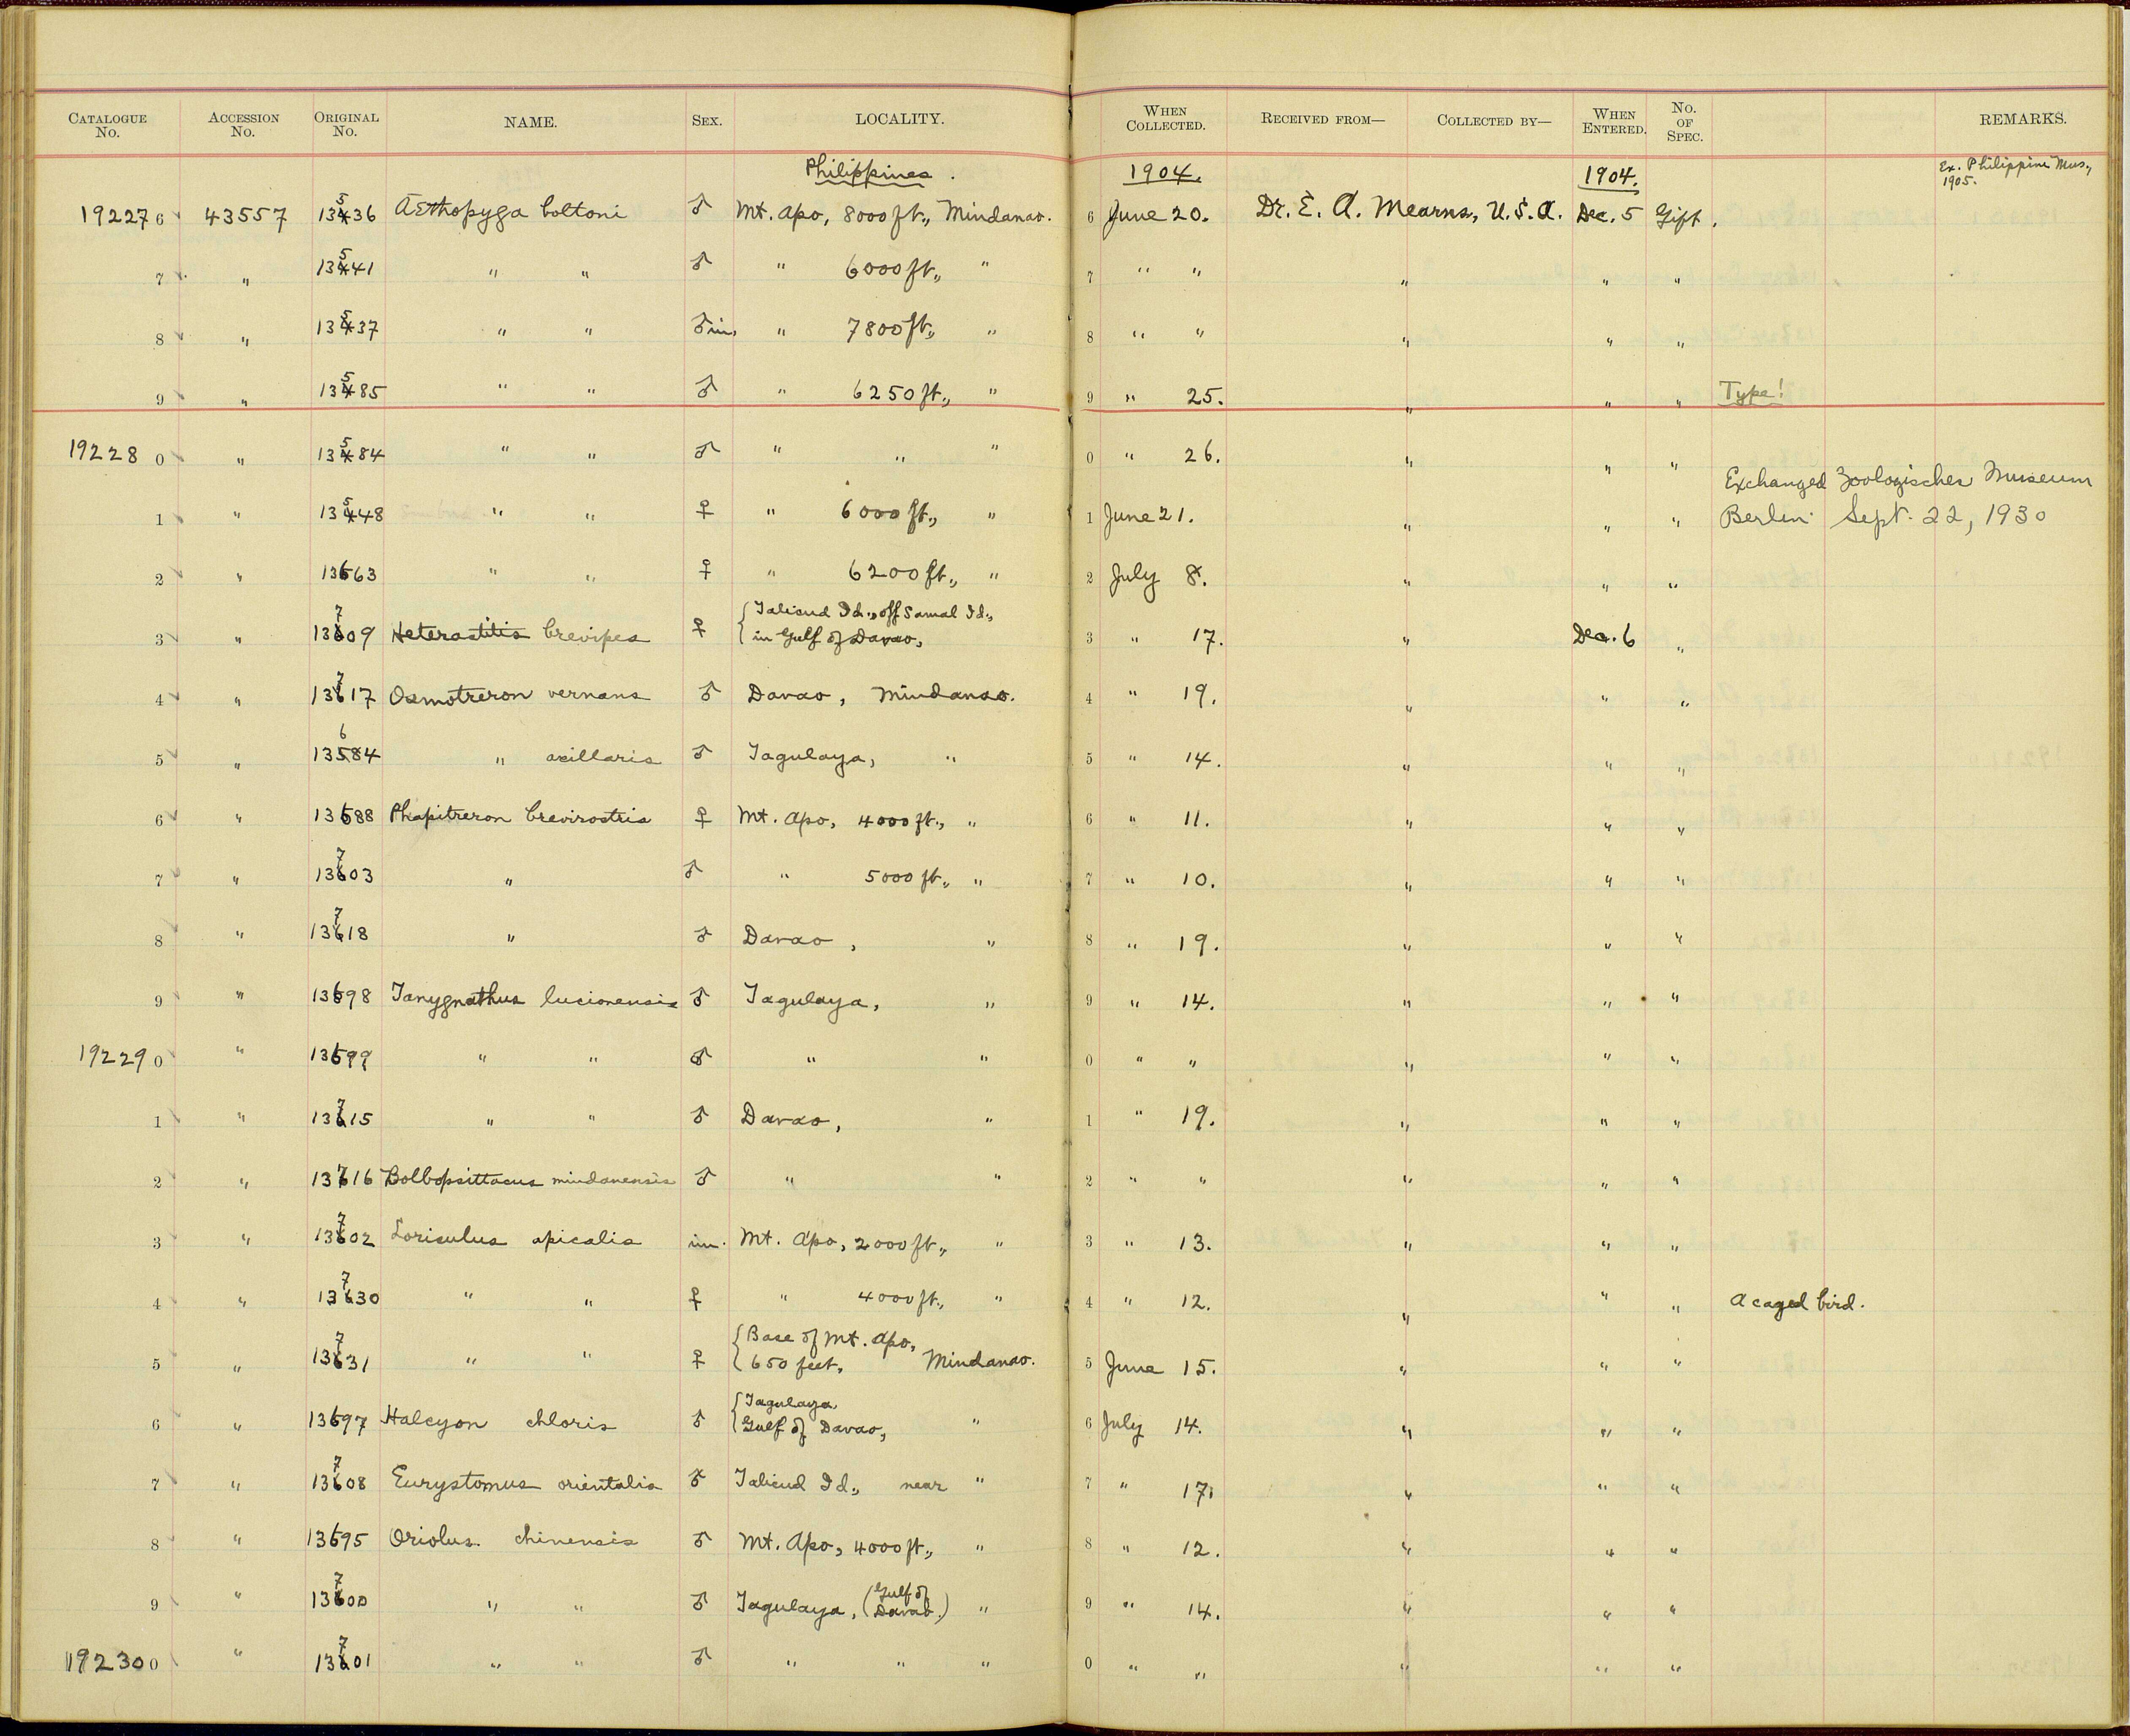 CATALOGUE No. ACCESSION No. ORIGINAL No. NAME. SEX. LOCALITY. WHEN COLLECTED. RECEIVED FROM— COLLECTED BY— WHEN ENTERED. No. OF SPEC. REMARKS.
Philippines. 1904. 1904. Ex. Philippine Mus., 1905.
192276 43557 13536 Aethopyga boltoni ♂ Mt. Apo, 8000 ft., Mindanao. 6 June 20. Dr. E. A. Mearns, U.S.A. Dec. 5 Gift.
7 " 13541 " " ♂ " 6000 ft., " 7 " " " " "
8 " 13537 " " ♂ im. " 7800 ft., " 8 " " " " "
9 " 13585 " " ♂ " 6250 ft., " 9 " 25. " " " Type!
192280 " 13584 " " ♂ " " " 0 " 26. " " "
1 " 13548 " " ♀ " 6000 ft., " 1 June 21. " " " Exchanged Zoologisches Museum
Berlin Sept. 22, 1930
2 " 13663 " " ♀ " 6200 ft., " 2 July 8. " " "
3 " 13709 Heteractitis brevipes ♀ { Talicud Id., off Samal Id., in Gulf of Davao, 3 " 17. " Dec. 6 "
4 " 13717 Osmotreron vernans ♂ Davao, Mindanao. 4 " 19. " " "
5 " 13684 " axillaris ♂ Tagulaya, " 5 " 14. " " "
6 " 13688 Phapitreron brevirostris ♀ Mt. Apo, 4000 ft., " 6 " 11. " " "
7 " 13703 " ♂ " 5000 ft., " 7 " 10. " " "
8 " 13718 " ♂ Davao, " 8 " 19. " " "
9 " 13698 Tanygnathus lucionensis ♂ Tagulaya, " 9 " 14. " " "
192290 " 13699 " " ♂ " " 0 " " " " "
1 " 13715 " " ♂ Davao, " 1 " 19. " " "
2 " 13716 Bolbopsittacus mindanensis ♂ " " 2 " " " " "
3 " 13702 Loriculus apicalis im. Mt. Apo, 2000 ft., " 3 " 13. " " "
4 " 13730 " " ♀ " 4000 ft., " 4 " 12. " " " A caged bird.
5 " 13731 " " ♀ { Base of Mt. Apo, 650 feet, Mindanao. 5 June 15. " " "
6 " 13697 Halcyon chloris ♂ { Tagulaya, Gulf of Davao, " 6 July 14. " " "
7 " 13708 Eurystomus orientalis ♂ Talicud Id., near " 7 " 17. " " "
8 " 13695 Oriolus chinensis ♂ Mt. Apo, 4000 ft., " 8 " 12. " " "
9 " 13700 " " ♂ Tagulaya, (Gulf of Davao.) " 9 " 14. " " "
192300 " 13701 " " ♂ " " " 0 " " " " "